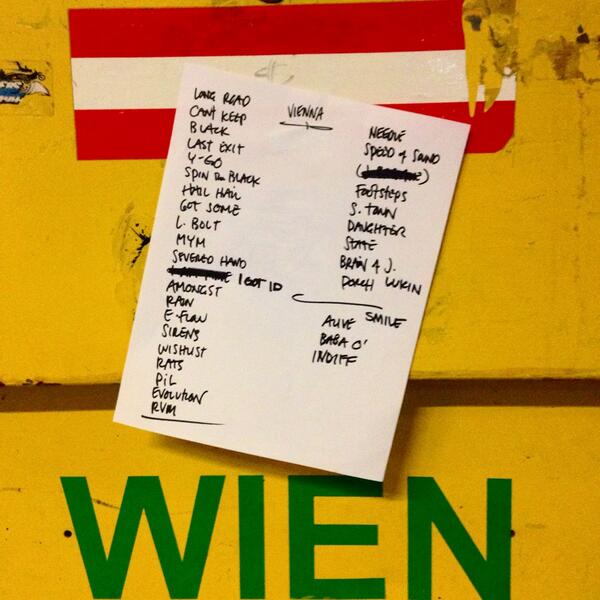 VIENNA
LONG ROAD
CANT KEEP
BLACK
LAST EXIT
Y-GO
SPIN THE BLACK
HAIL HAIL
GOT SOME
L. BOLT
MYM
SEVERED HAND
I GOT ID
AMONGST
RAIN
E FLOW
SIRENS
WISHLIST
RATS
PIL
EVOLUTION
RVM
NEEDLE
SPEED OF SOUND
FOOTSTEPS
S. TOWN
DAUGHTER
STATE
BRAIN OF J.
PORCH LUKIN
SMILE
ALIVE
BABA O'
INDIFF
WIEN